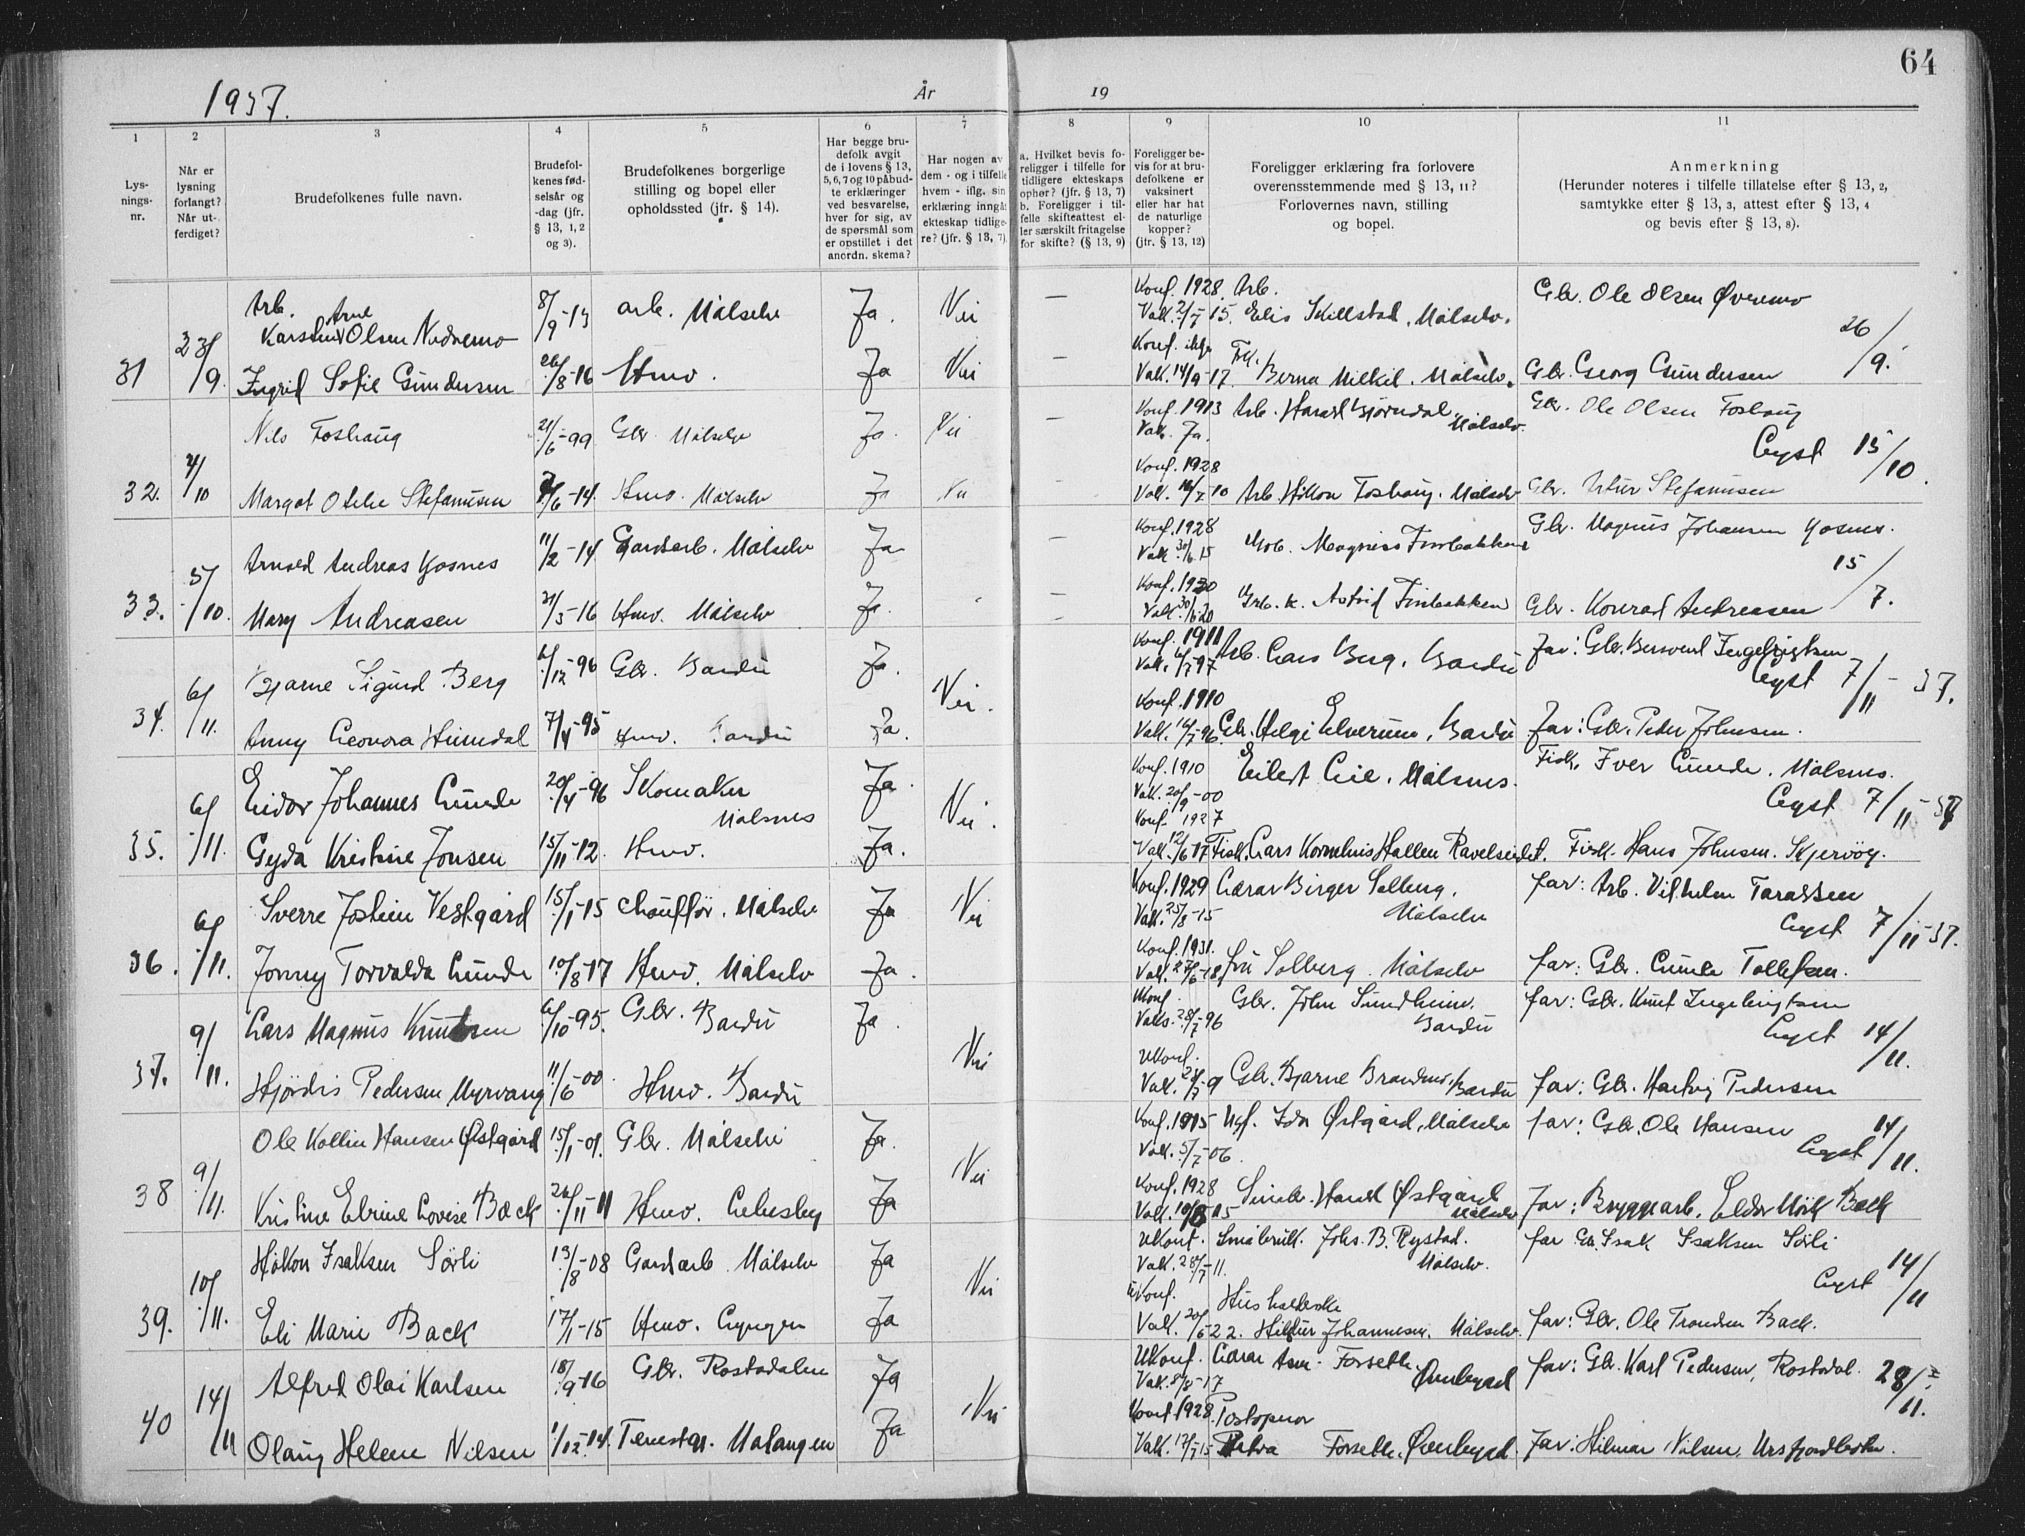 64
1937.
År
19
1
2
3
4
5
6
7
8
9
10
11
Lys-
nings-
nr.
Når er
lysning
forlangt?
Når ut-
ferdiget?
Brudefolkenes fulle navn.
Brudefol-
kenes fød-
selsår og
-dag (jfr.
§ 13, 1, 2
og 3).
Brudefolkenes borgerlige
stilling og bopel eller
opholdssted (jfr. § 14).
Har begge bru-
defolk avgit
de i lovens § 13,
5, 6, 7 og 10 påbud-
te erklæringer
ved besvarelse,
hver for sig, av
de spørsmål som
er opstillet i det
anordn. skema?
Har nogen av
dem - og i tilfelle
hvem - iflg. sin
erklæring inngått
ekteskap tidlige-
re? (jfr. § 13, 7)
a. Hvilket bevis fo-
religger i tilfelle for
tidligere ekteskaps
ophør? (jfr. § 13, 7)
b. Foreligger i til-
felle skifteattest el-
ler særskilt fritagelse
for skifte? (§ 13, 9)
Foreligger be-
vis for at bru-
defolkene er
vaksinert
eller har hat
de naturlige
kopper?
(jfr. § 13, 12)
Foreligger erklæring fra forlovere
overensstemmende med § 13, 11?
Forlovernes navn, stilling
og bopel.
Anmerkning
(Herunder noteres i tilfelle tillatelse efter § 13, 2,
samtykke efter § 13, 3, attest efter § 13, 4
og bevis efter § 13, 8).
Arb. Arne
Karsten Olsen Nedremo 8/9-13 arb. Målselv Ja. Nei — Konf. 1928 Arb. Gbr. Ole Olsen Øveremo
Vak. 2/7-15. Elis Skillstad, Målselv. 26/9.
31 23/9. Ingrid Sofie Gundersen 26/8-16 Hmv. Ja Nei — Konf. ikke
Vak. 14/9-17. Berna Milkil. Målselv. Gbr. Georg Gundersen
Nils Foshaug 21/6-99 Gbr. Målselv Ja. Nei — Konf. 1913 Arb. Harald Bjørndal, Målselv. Gbr. Ole Olsen Foshaug
Vak. Ja. Lyst 15/10.
32. 4/10 Margot Otelie Stefanusen /6-14. Hmv. Målselv Ja Nei - Konf. 1928
Vak. 16/7-10 Arb. Håkon Foshaug. Målselv Gbr. Artur Stefanusen
Arnold Andreas Gosnes 11/2-14. Gardsarb. Målselv Ja - Konf. 1928
Vak. 30/6 15 Magnus Finbakken Gbr. Magnus Johansen Gosnes.
15/7.
33. 5/10. Mary Andreasen 21/3-16 Hmv. Målselv Ja. - Konf. 1930
Vak. 30/6 20 Astrid Finbakken Gbr. Konrad Andreasen
Bjarne Sigurd Berg 6/12-96 Gbr. Bardu Ja. Konf. 1911
Vak. 6/7-97 Arb. Lars Berg, Bardu far: Gbr. Ingebrigtsen
Lyst 7/11-37.
34. 6/11. Nei. Anny Leonora Heimdal 7/4-95 Hmv. Bardu Ja. Konf. 1910
Vak. 16/7-96. Gbr. Helge Elverum, Bardu far: Gbr. Peder Johnsen.
Eidar Johannes Lunde 20/4-96 Skomaker Målsnes Ja. Konf. 1910 Eilert Lie, Målsnes. Fisk. Iver Lunde. Målsnes.
Vak. 20/9-00 Lyst 7/11-37
35. 6/11. Nei. Gyda Kristine Jonsen 15/11-12. Hmv. Ja. Konf. 1927
Vak. 12/6 17 Fisk. Lars Kornelius Hallen Ravelseidet. Fisk. Hans Johnsen. Skjervøy.
Sverre Jostein Vestgård 15/1-15 Chauffør. Målselv Ja Nei Konf. 1929 Lærar Birger Solberg, Målselv far: Arb. Vilhelm Taraldsen
Vak. 25/8-15 Lyst 7/11-37.
36. 6/11. Jonny Torvalda Lunde 10/8-17 Hmv. Målselv Ja. Konf. 1931.
Vak. 27/6-18. Fru Solberg. Målselv far: Gbr. Lunde Tollefsen.
Lars Magnus Knutsen 6/10-95. Gbr. Bardu Ja. Ukonf.
Vaks. 28/7-96 Gbr. John Sundheim. Bardu far: Gbr. Knut Ingebrigtsen
Lyst 14/11.
37. 9/11. Nei Hjørdis Pedersen Myrvang 11/6-00. Hmv. Bardu Ukonf.
Vak. Gbr. Bjarne Brandmo, Bardu far: Gbr. Hartvig Pedersen
Ole Kollin Hansen Østgård 15/1-01. Gbr. Målselv Ja. Konf. 1915 Ugf. Ida Østgård, Målselv far: Gbr. Ole Hansen
Vak. 5/7-06. Lyst 14/11.
38 9/11. Nei Kristine Elvine Lovise Bæck 26/11-11 Hmv. Lebesby Ja Konf. 1928
Vak. 10/8 15 Småbr. Harald Østgård Målselv far: Bryggearb. Eldor Mørk Bæck
Håkon Isaksen Sørli 13/8-08 Gardsarb. Målselv Ja Ukonf. Småbruk. Johs. B. Rystad. Målselv. far Gbr. Isak Isaksen Sørli
Vak. 28/7-11. Lyst 14/11
39. 10/11. Nei Eli Marie Bæck 17/1-15 Hmv. Lyngen Ja Ukonf. Husholderske
Vak. 20/5 22. Hildur Johannesen, Målselv. far: Gbr. Ole Trondsen Bæck.
Alfred Olai Karlsen 18/9-16 Gbr. Rostadalen Ja Ukonf. Lærar Asm. Forseth Øverbygd far: Gbr. Karl Pedersen, Rostadal. 28/11.
Vak. 8/8-17
40 14/11 Nei Olaug Helene Nilsen 1/12-14. Tenestej. Malangen Ja Konf. 1928. Postopnar
Vak. 17/7-15 Petra Forseth. Øverbygd. far: Hilmar Nilsen, Ursfjordbotn.